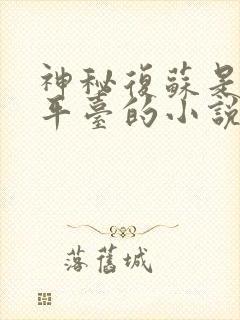 神秘復蘇是
平臺的小說
落舊城